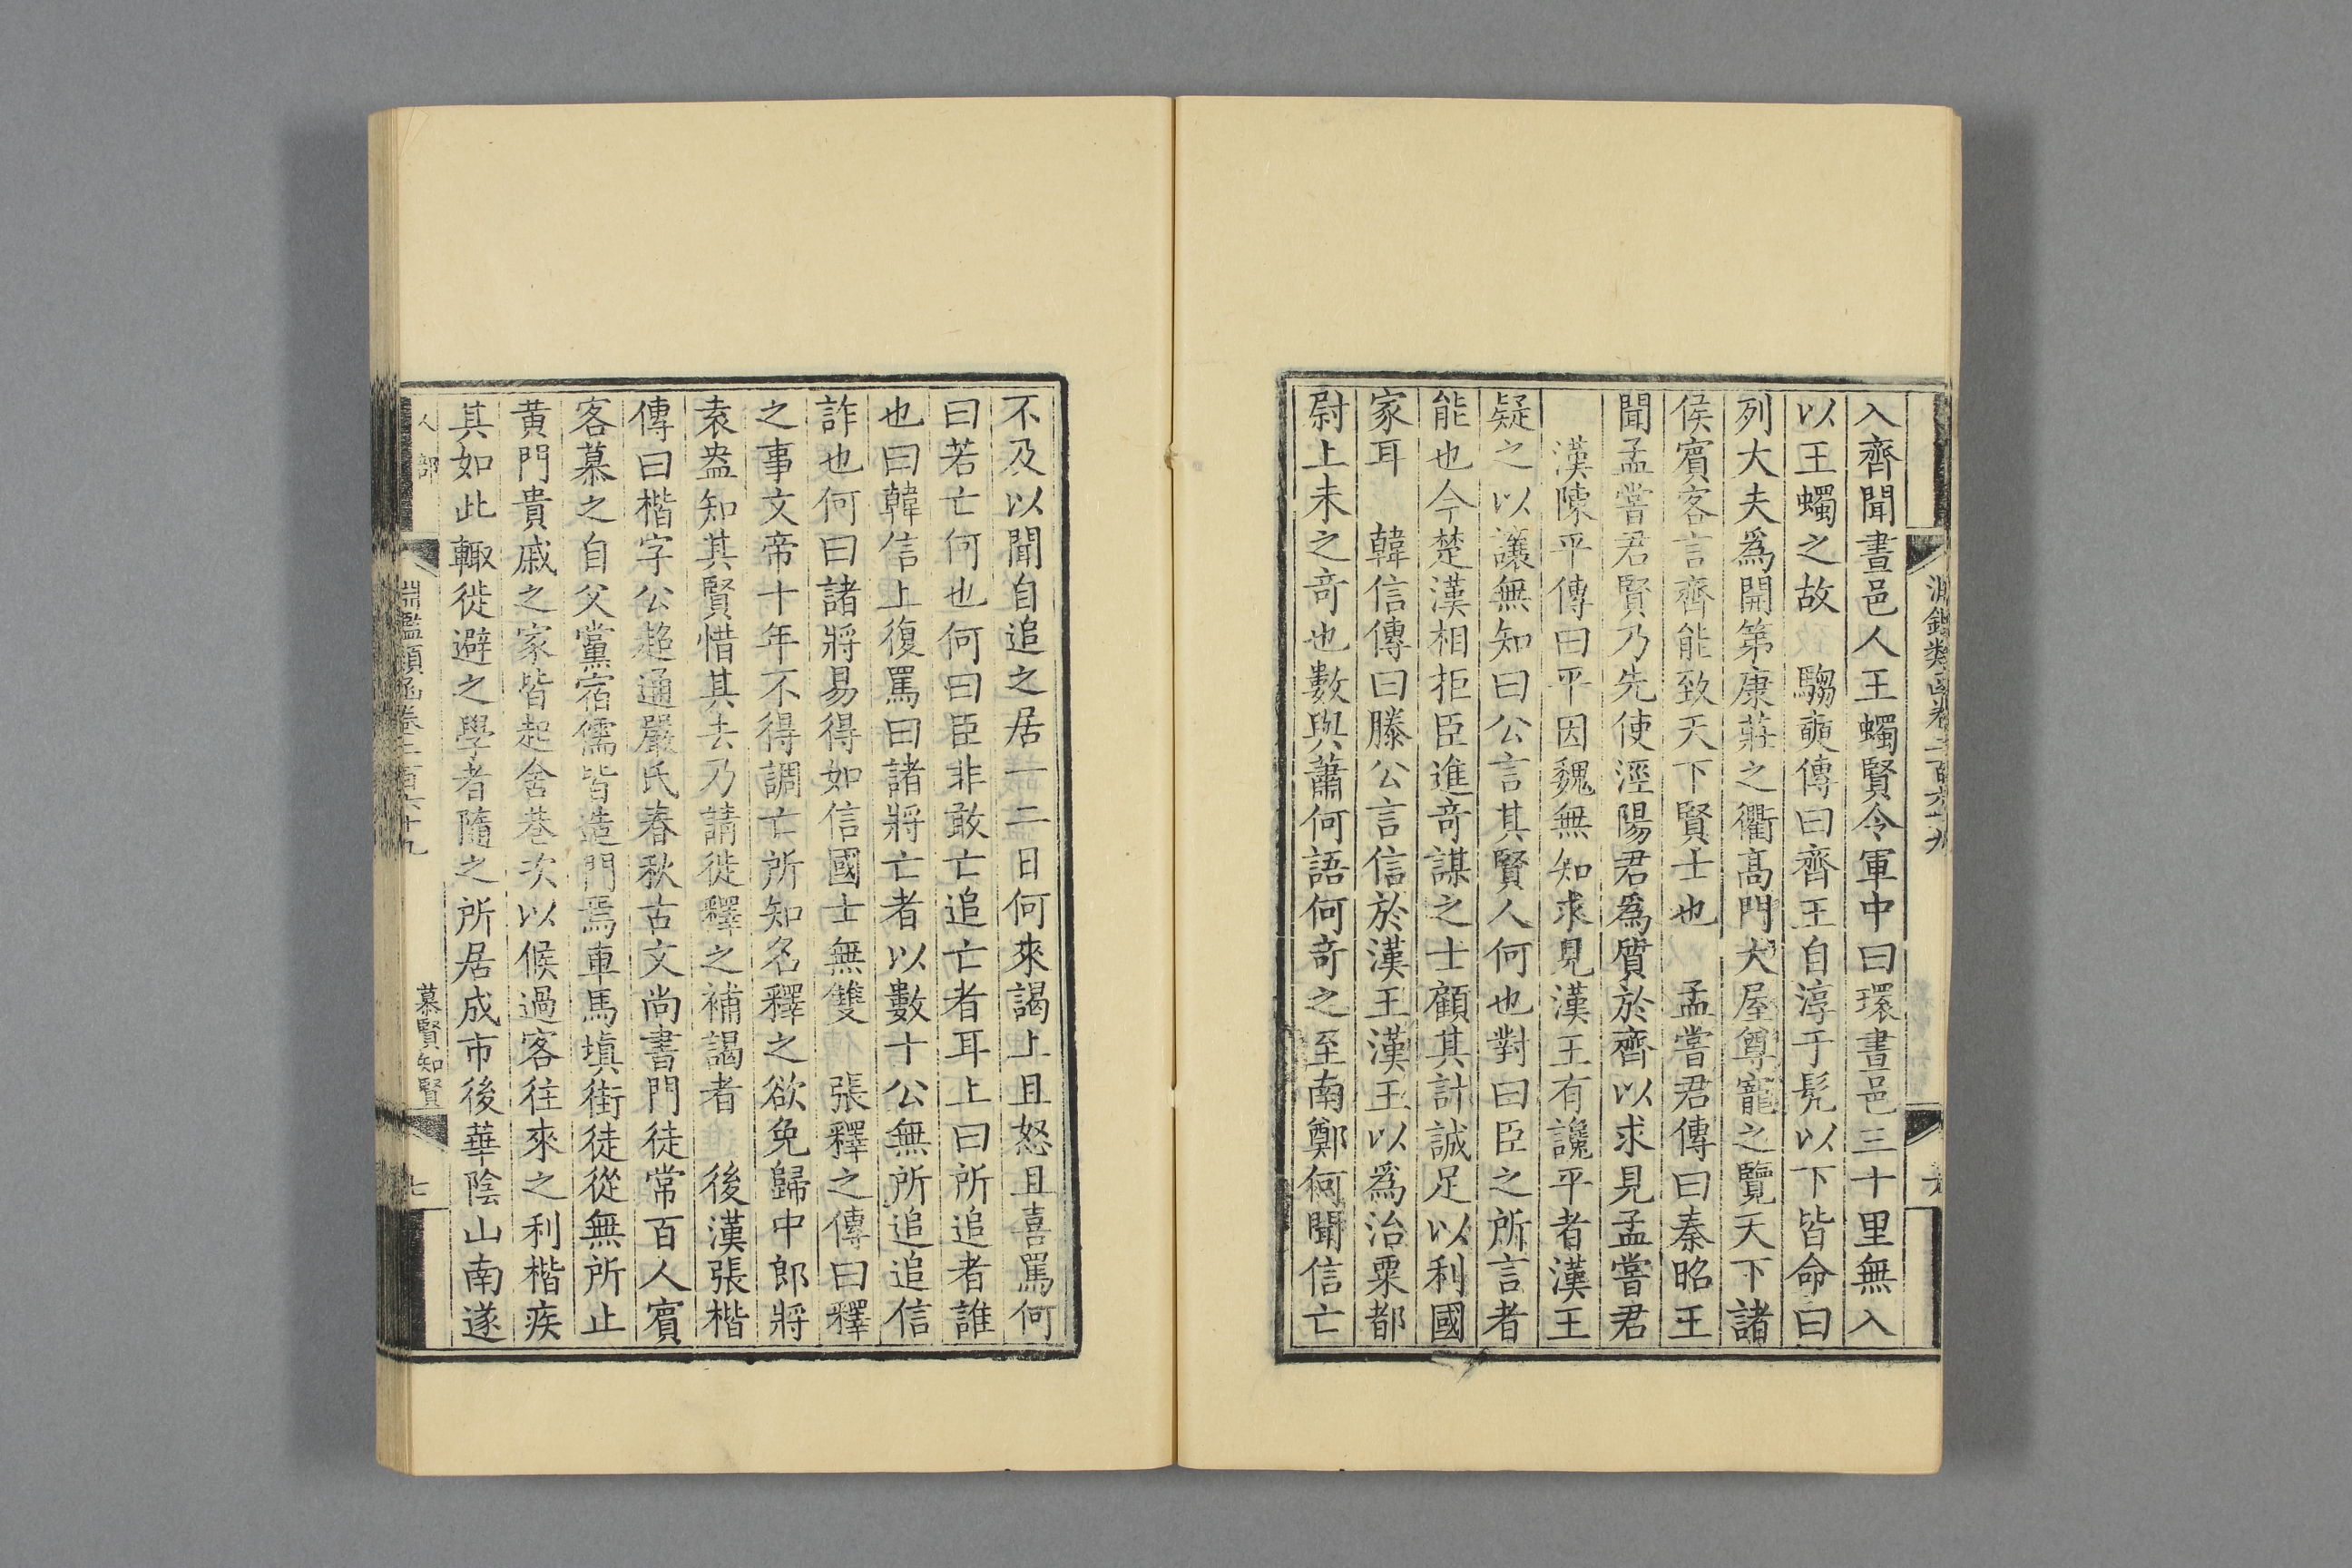 入齊聞晝邑人王蠋賢令軍中曰環晝邑三十里無入
以王蠋之故　騶奭傳曰齊王自淳于髡以下皆命曰
列大夫爲開第康莊之衢高門大屋尊寵之覽天下諸
侯賓客言齊能致天下賢士也　孟嘗君傳曰秦昭王
聞孟嘗君賢乃先使涇陽君爲質於齊以求見孟嘗君
漢陳平傳曰平因魏無知求見漢王漢王有讒平者漢王
疑之以讓無知曰公言其賢人何也對曰臣之所言者
能也今楚漢相拒臣進奇謀之士顧其計誠足以利國
家耳　韓信傳曰滕公言信於漢王漢王以爲治粟都
尉上未之奇也數與蕭何語何奇之至南鄭何聞信亡
不及以聞自追之居一二日何來謁上且怒且喜罵何
曰若亡何也何曰臣非敢亡追亡者耳上曰所追者誰
也曰韓信上復罵曰諸將亡者以數十公無所追追信
詐也何曰諸將易得如信國士無雙　張釋之傳曰釋
之事文帝十年不得調亡所知名釋之欲免歸中郎將
袁盎知其賢惜其去乃請徙釋之補謁者　後漢張楷
傳曰楷字公超通嚴氏春秋古文尚書門徒常百人賓
客慕之自父黨宿儒皆造門焉車馬塡街徒從無所止
黃門貴戚之家皆起舍巷次以候過客往來之利楷疾
其如此輙徙避之學者隨之所居成市後華陰山南遂
人部　淵鑑類函卷二百六十九　慕賢知賢　七